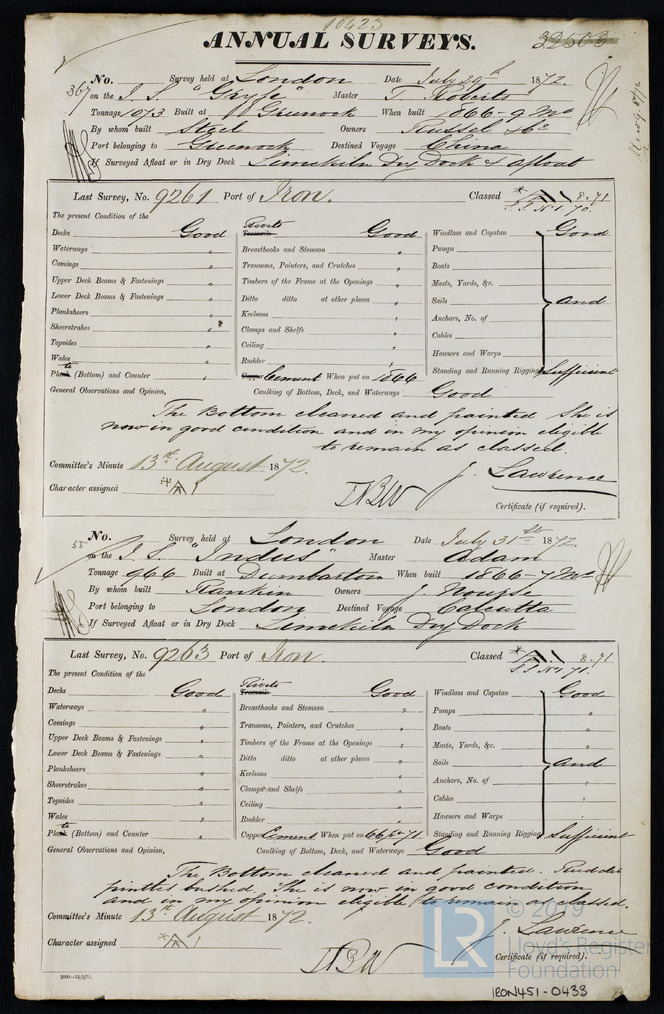 10423
ANNUAL SURVEYS. 32503
No. Survey held at London Date July 29th 1872.
367 on the I. S. "Gryfe" Master T. Roberts
Tonnage 1073 Built at Greenock When built 1866-9 Mo
By whom built Steel Owners Russel & Co
Port belonging to Greenock Destined Voyage China
If Surveyed Afloat or in Dry Dock Limekiln Dry Dock & afloat
Last Survey, No. 9261 Port of Iron. Classed 8.71
S.S. No 1. 70.
The present Condition of the Rivets
Decks Good Treenails Good Windlass and Capstan Good
Waterways " Breasthooks and Stemson " Pumps
Comings " Transoms, Pointers, and Crutches " Boats
Upper Deck Beams & Fastenings " Timbers of the Frame at the Openings " Masts, Yards, &c.
Lower Deck Beams & Fastenings " Ditto ditto at other places " Sails and
Planksheers " Keelsons " Anchors, No. of
Sheerstrakes " Clamps and Shelfs " Cables
Topsides " Ceiling " Hawsers and Warps
Wales " Rudder " Standing and Running Rigging Sufficient
Plate (Bottom) and Counter " Cement When put on 1866
General Observations and Opinion, Caulking of Bottom, Deck, and Waterways Good
The Bottom cleaned and painted She is
now in good condition and in my opinion eligible
to remain as classed.
Committee's Minute 13th August 1872. J. Lawrence
Character assigned A 1 Certificate (if required).
No. Survey held at London Date July 31st 1872.
55 on the I. S. "Indus" Master Adam
Tonnage 966 Built at Dumbarton When built 1866-7 Mo
By whom built Rankin Owners J. Nourse
Port belonging to London Destined Voyage Calcutta
If Surveyed Afloat or in Dry Dock Limekiln Dry Dock
Last Survey, No. 9263 Port of Iron. Classed 8.71
S.S. No 1 71.
The present Condition of the Rivets
Decks Good Treenails Good Windlass and Capstan Good
Waterways " Breasthooks and Stemson " Pumps "
Comings " Transoms, Pointers, and Crutches " Boats "
Upper Deck Beams & Fastenings " Timbers of the Frame at the Openings " Masts, Yards, &c. "
Lower Deck Beams & Fastenings " Ditto ditto at other places " Sails and
Planksheers " Keelsons " Anchors, No. of "
Sheerstrakes " Clamps and Shelfs " Cables "
Topsides " Ceiling " Hawsers and Warps "
Wales " Rudder " Standing and Running Rigging Sufficient
Plate (Bottom) and Counter " Copper Cement When put on 66 pt 71
General Observations and Opinion, Caulking of Bottom, Deck, and Waterways Good
The Bottom cleaned and painted. Rudder
pintles bushed. She is now in good condition
and in my opinion eligible to remain as classed.
Committee's Minute 13th August 1872. J. Lawrence
Character assigned A 1 Certificate (if required).
2000—11/2/71.
LR © 2019
Lloyd's Register
Foundation
IRON451-0433